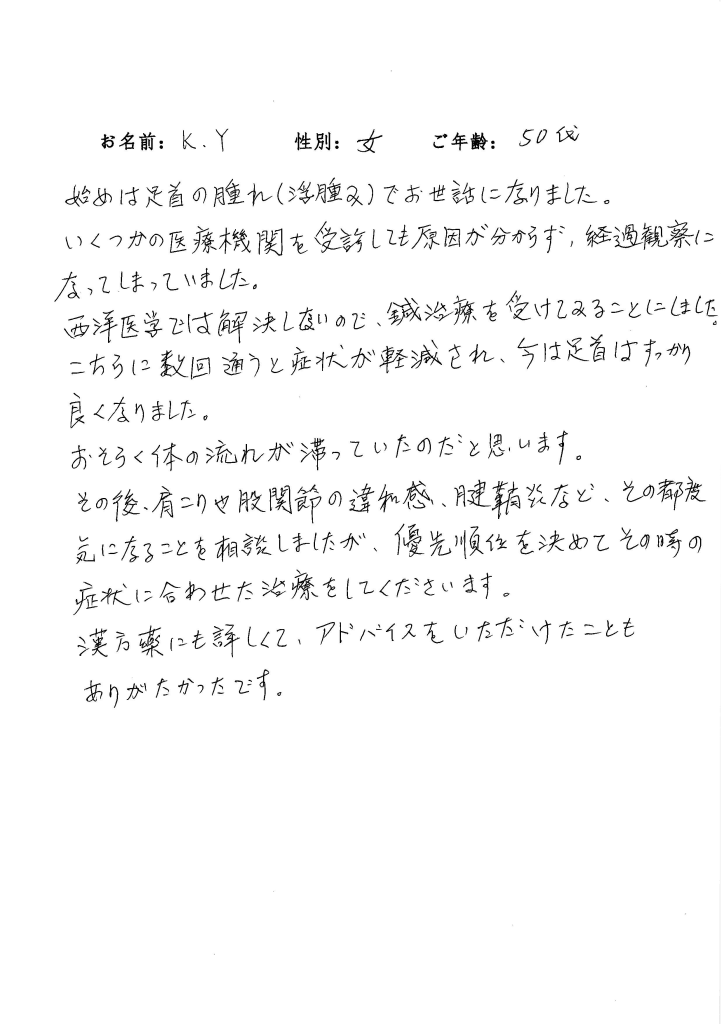 お名前: K.Y 性別: 女 ご年齢: 50代
始めは足首の腫れ(浮腫み)でお世話になりました。
いくつかの医療機関を受診しても原因が分からず、経過観察に
なってしまっていました。
西洋医学では解決しないので、鍼治療を受けてみることにしました。
こちらに数回通うと症状が軽減され、今は足首はすっかり
良くなりました。
おそらく体の流れが滞っていたのだと思います。
その後、肩こりや股関節の違和感、腱鞘炎など、その都度
気になることを相談しましたが、優先順位を決めてその時の
症状に合わせた治療をしてくださいます。
漢方薬にも詳しくて、アドバイスをいただけたことも
ありがたかったです。